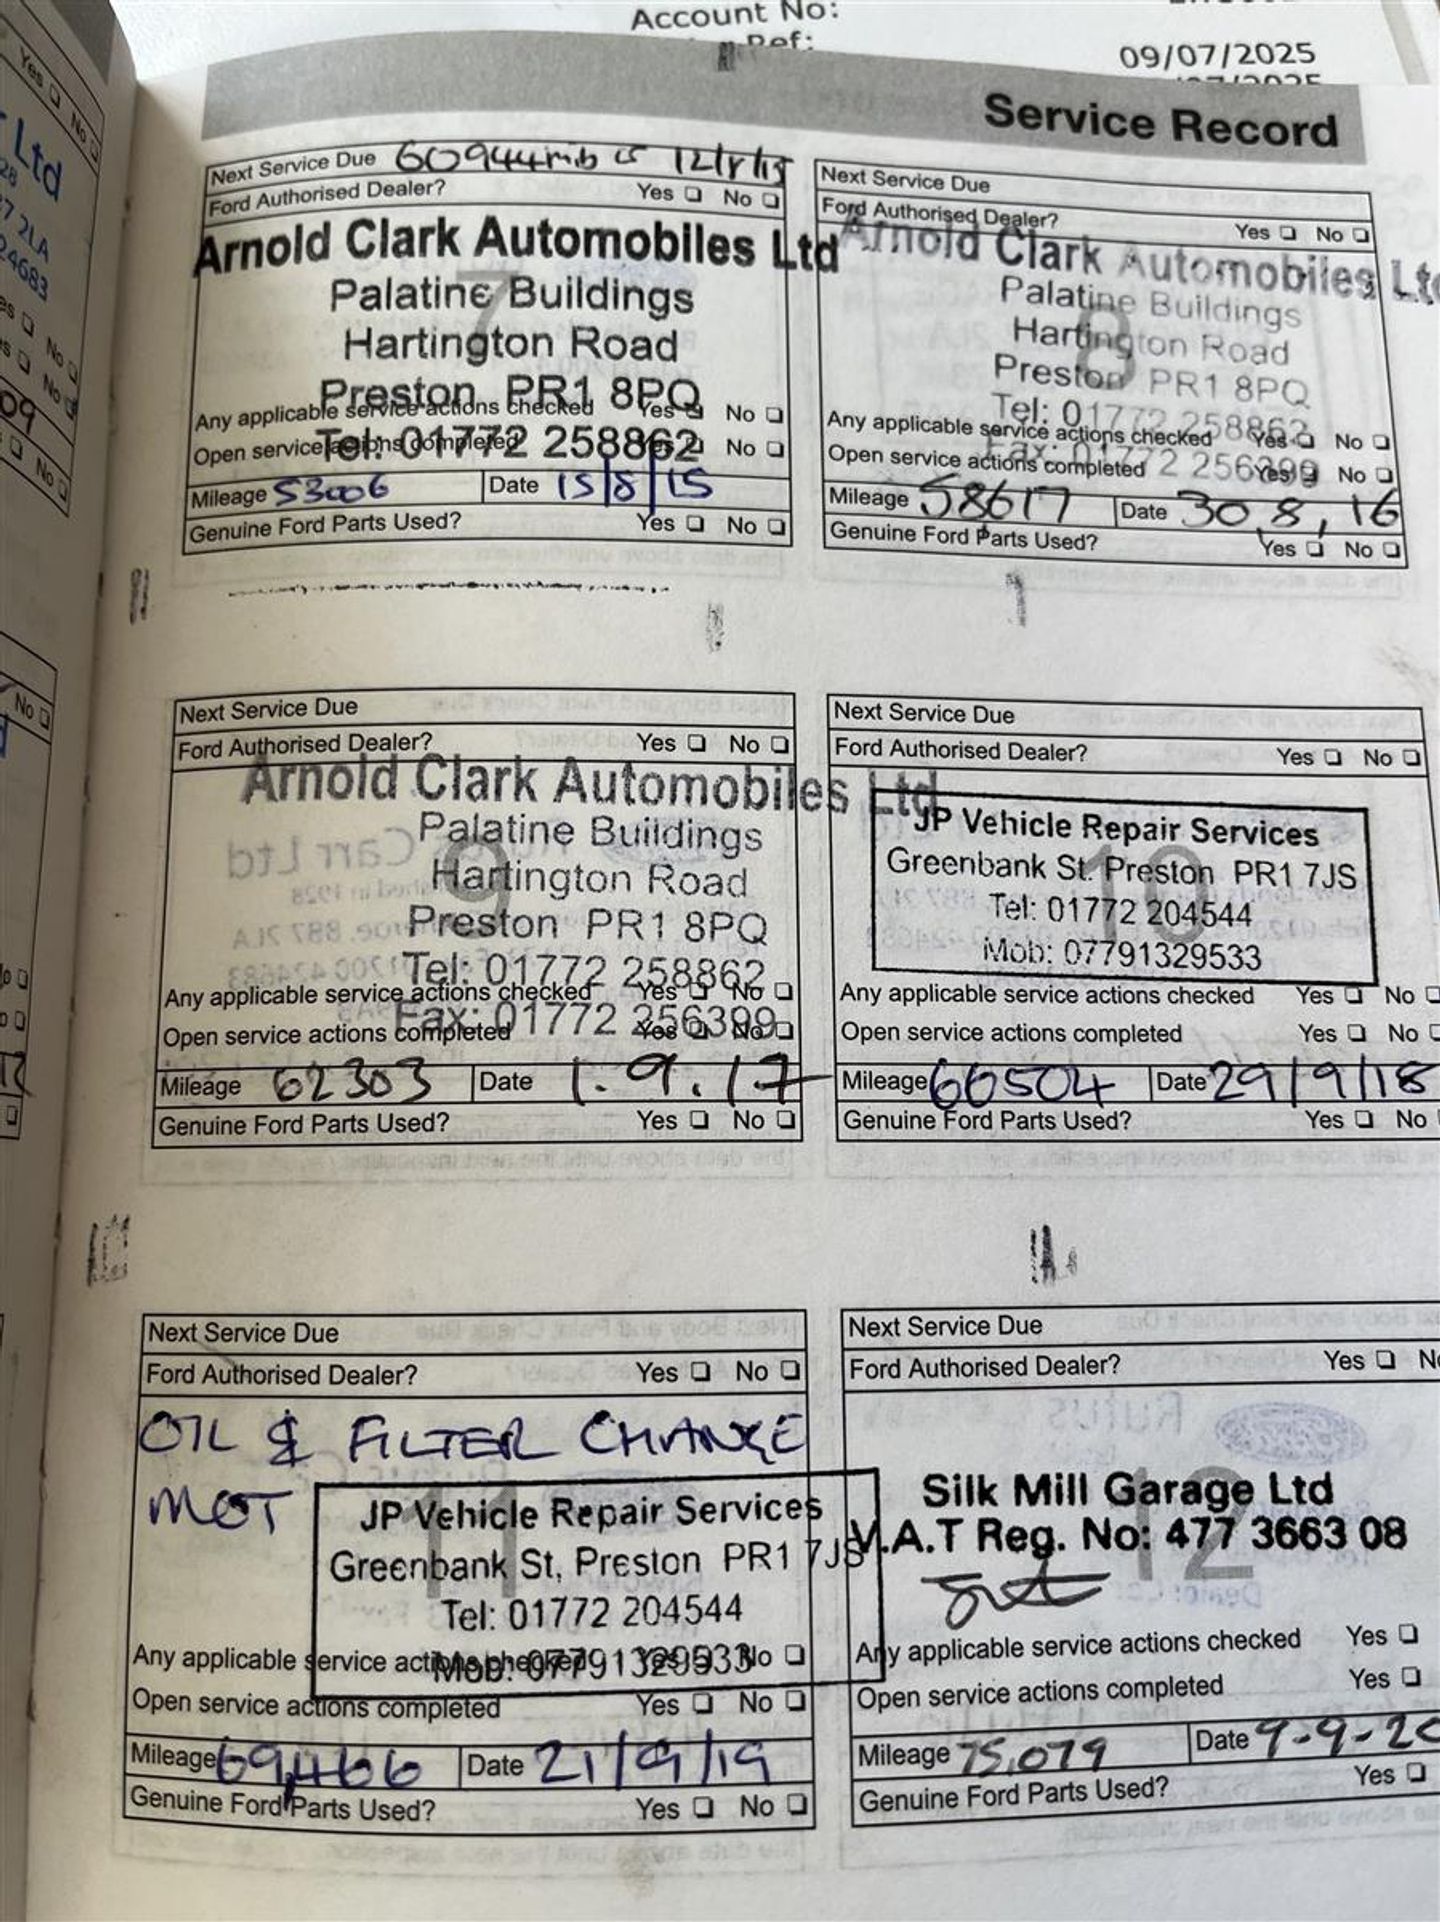 Account No:
Ref:
09/07/2025
Service Record
Next Service Due
Ford Authorised Dealer? Yes No
Arnold Clark Automobiles Ltd
7
Palatine Buildings
Hartington Road
Preston PR1 8PQ
Any applicable service actions checked Yes No
Tel: 01772 258862
Open service actions completed Yes No
Mileage 53006 Date 15/8/15
Genuine Ford Parts Used? Yes No
Next Service Due
Ford Authorised Dealer? Yes No
Arnold Clark Automobiles Lt
8
Palatine Buildings
Hartington Road
Preston PR1 8PQ
Tel: 01772 258862
Any applicable service actions checked Yes No
Fax: 01772 256399
Open service actions completed Yes No
Mileage 58617 Date 30,8,16
Genuine Ford Parts Used? Yes No
Next Service Due
Ford Authorised Dealer? Yes No
Arnold Clark Automobiles Ltd
9
Palatine Buildings
Hartington Road
Preston PR1 8PQ
Tel: 01772 258862
Any applicable service actions checked Yes No
Fax: 01772 256399
Open service actions completed Yes No
Mileage 62303 Date 1.9.17
Genuine Ford Parts Used? Yes No
Next Service Due
Ford Authorised Dealer? Yes No
10
JP Vehicle Repair Services
Greenbank St. Preston PR1 7JS
Tel: 01772 204544
Mob: 07791329533
Any applicable service actions checked Yes No
Open service actions completed Yes No
Mileage 66504 Date 29/9/18
Genuine Ford Parts Used? Yes No
Next Service Due
Ford Authorised Dealer? Yes No
OIL & FILTER CHANGE
MOT
11
JP Vehicle Repair Services
Greenbank St, Preston PR1 7JS
Tel: 01772 204544
Any applicable service actions checked Yes No
Mob: 07791329533
Open service actions completed Yes No
Mileage 69,466 Date 21/9/19
Genuine Ford Parts Used? Yes No
Next Service Due
Ford Authorised Dealer? Yes No
12
Silk Mill Garage Ltd
V.A.T Reg. No: 477 3663 08
Any applicable service actions checked Yes
Open service actions completed Yes
Mileage 75,079 Date 9-9-20
Genuine Ford Parts Used? Yes